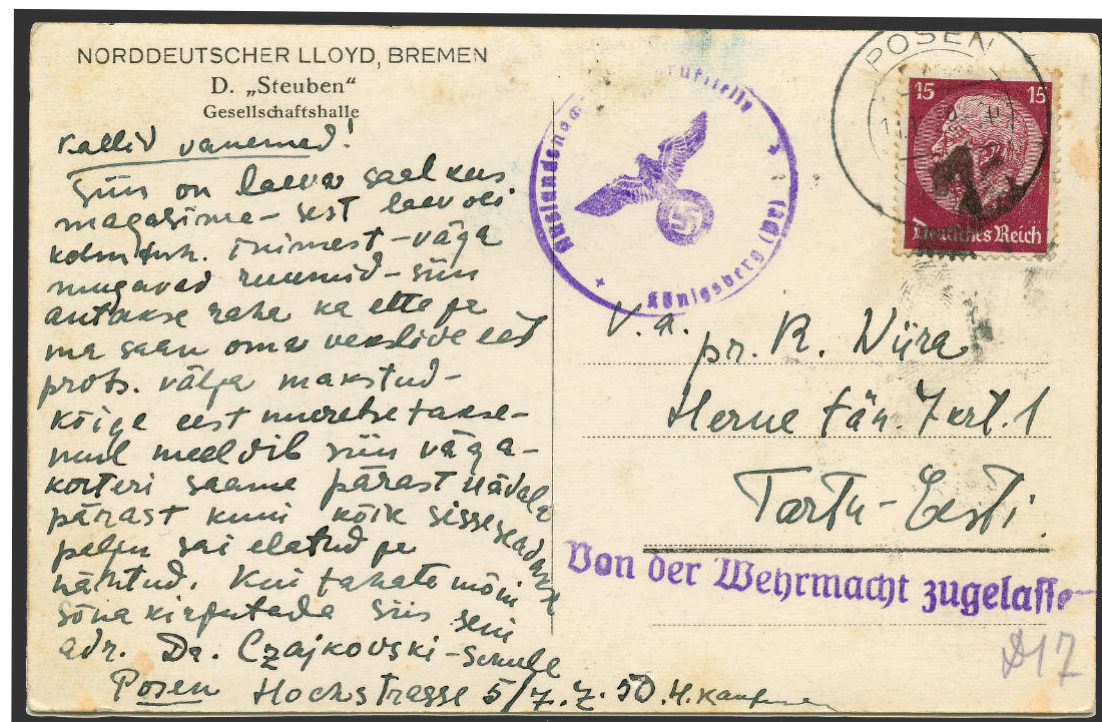 NORDDEUTSCHER LLOYD, BREMEN
D. „Steuben“
Gesellschaftshalle
Kallid vanemad!
Siin on laeva saal kus
magasime - sest laev oli
inimest - väga
mugavad ruumid - siin
antakse raha ka ette ja
ma saan oma eest
prots. välja makstud -
kõige eest muretsetakse -
mul meeldib siin väga -
korteri saame pärast nädala
pärast kuni kõik sisseseadmise
palju sai elatud ja
nähtud. Kui tahate mõni
sõna kirjutada siis seni
adr. Da. Czajkovski-Schule
Posen Hochstrasse 5/7. Z. 50. H.
POSEN
15 15
Deutsches Reich
Königsberg (Pr)
V. a.
pr. R. Niira
Herne tän. 7 krt. 1
Tartu - Eesti.
Von der Wehrmacht zugelasse
17